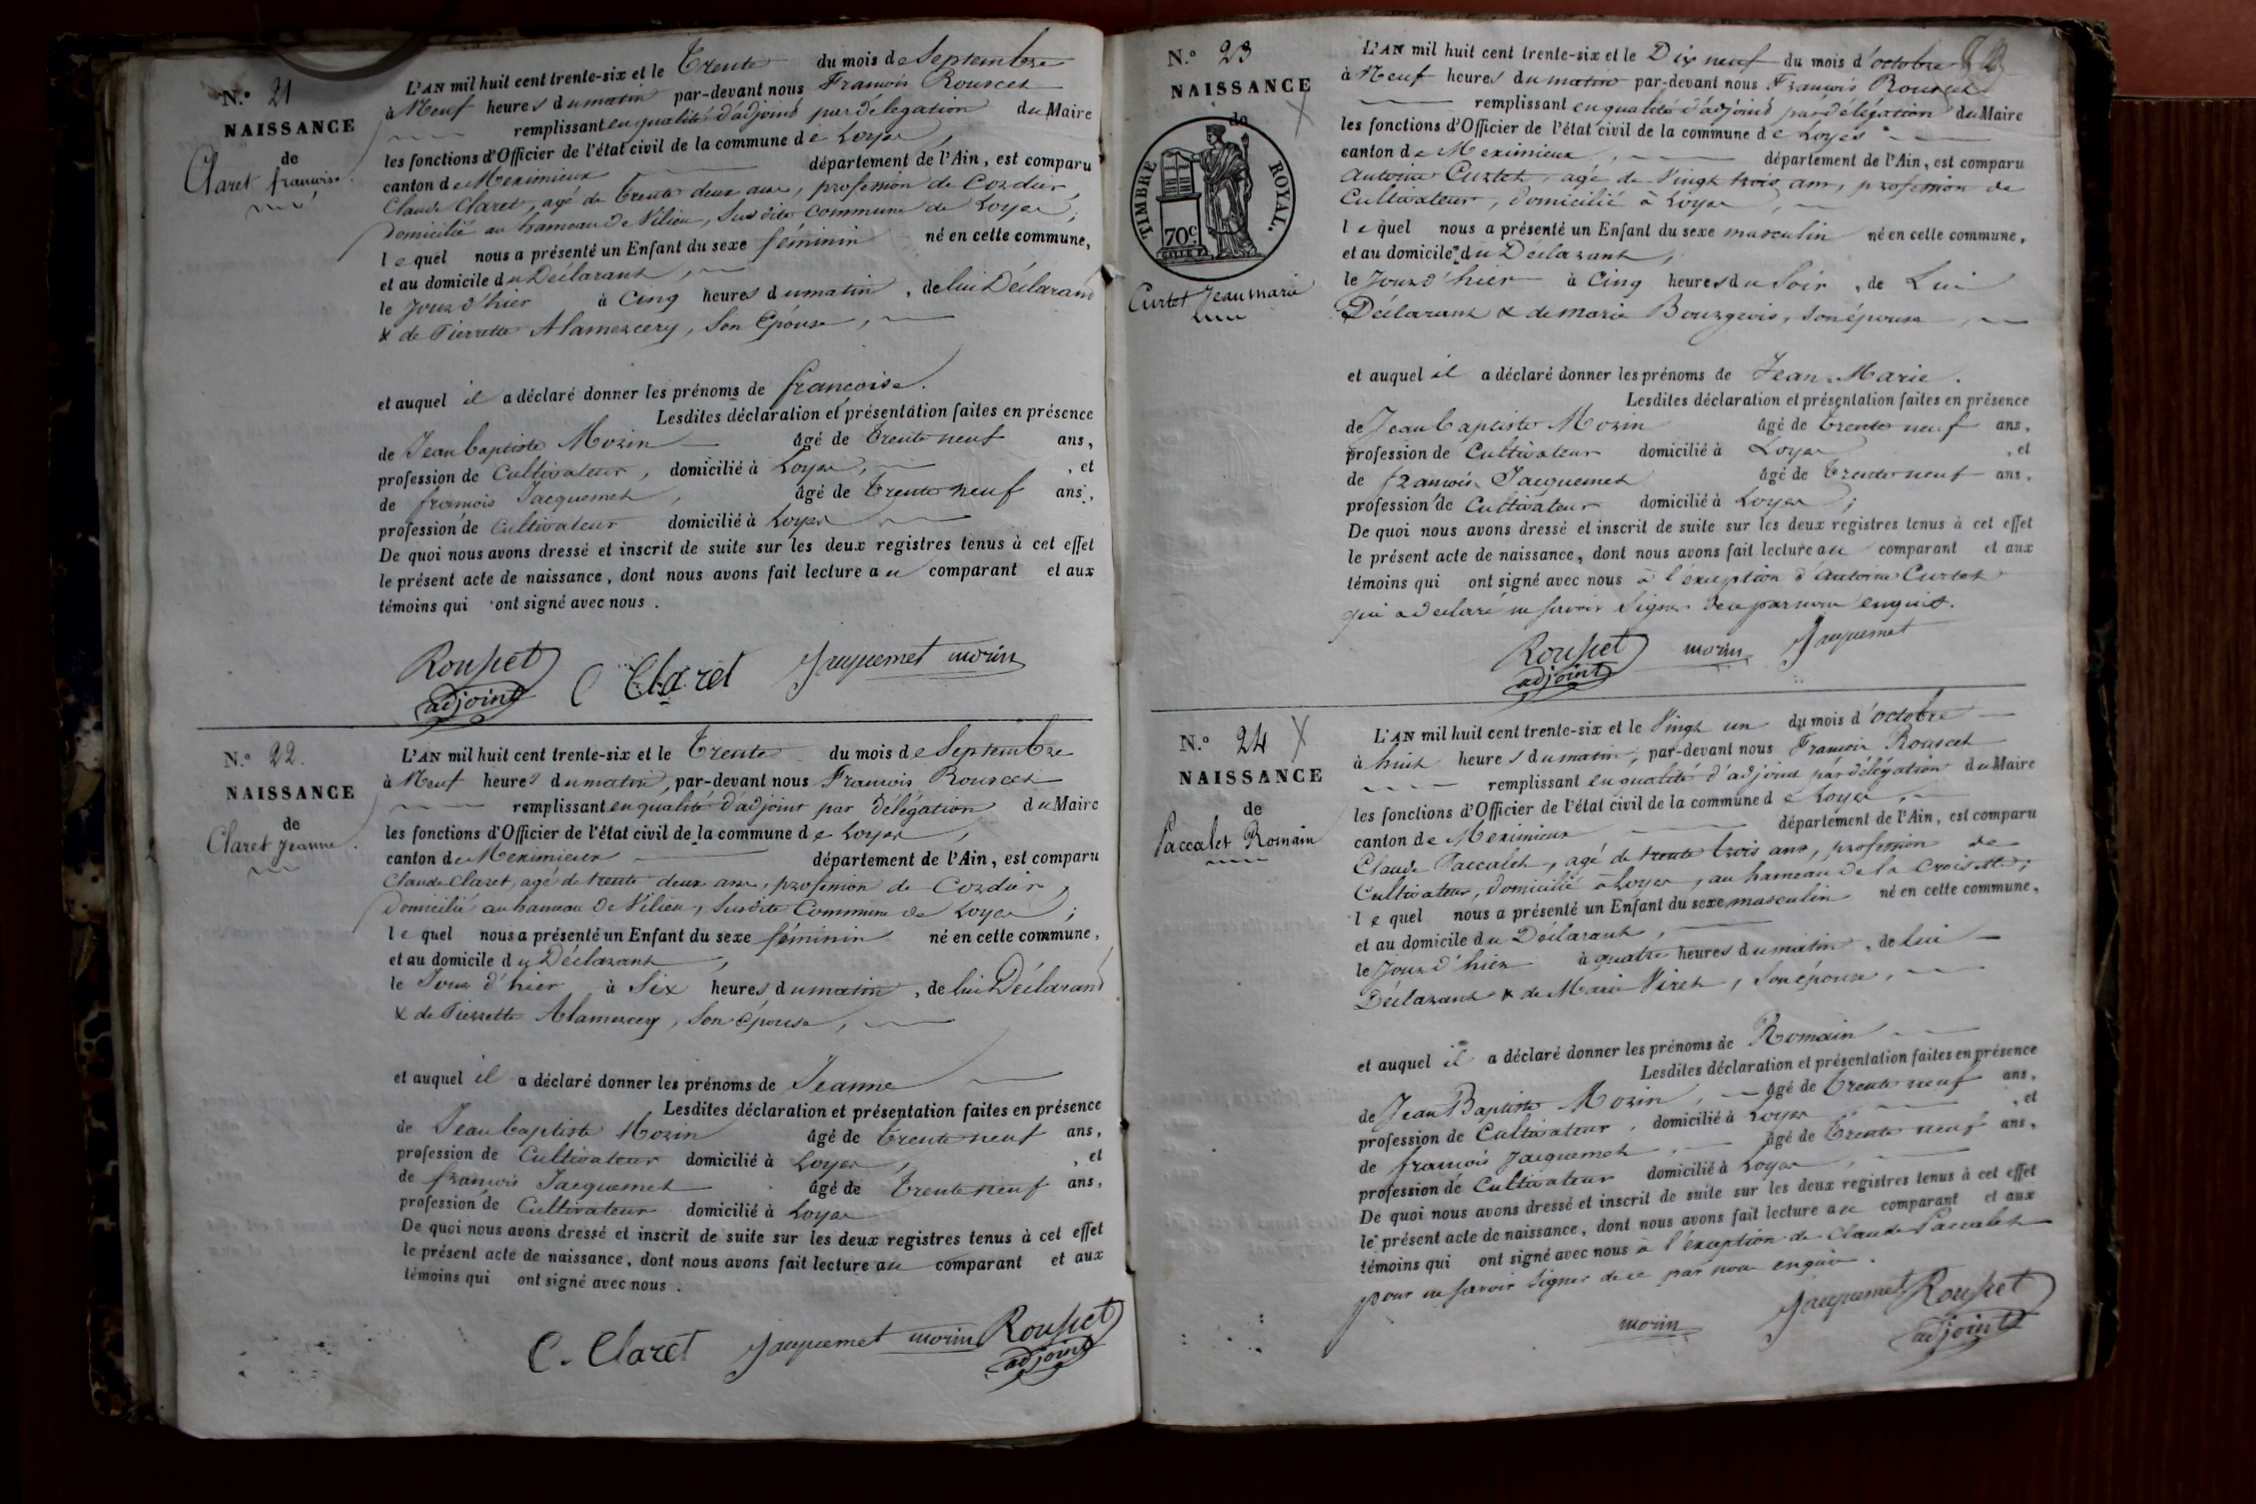 N.° 21
NAISSANCE
de
Claret françoise.
L'AN mil huit cent trente-six et le Trente du mois de Septembre
à Neuf heures du matin par-devant nous François Rousset
remplissant en qualité d'adjoint par délégation du Maire
les fonctions d'Officier de l'état civil de la commune de Loyes,
canton de Meximieux département de l'Ain, est comparu
Claude Claret, agé de trente deux ans, profession de Cordier,
domicilié au hameau de Vilieu, susdite commune de Loyes;
lequel nous a présenté un Enfant du sexe féminin né en cette commune,
et au domicile du Déclarant,
le Jour d'hier à Cinq heures du matin, de lui Déclarant
& de Pierrette Alamercery, son Epouse,
et auquel il a déclaré donner les prénoms de françoise.
Lesdites déclaration et présentation faites en présence
de Jean baptiste Morin âgé de trente neuf ans,
profession de Cultivateur, domicilié à Loyes, et
de françois Jacquemet, âgé de trente neuf ans,
profession de Cultivateur domicilié à Loyes
De quoi nous avons dressé et inscrit de suite sur les deux registres tenus à cet effet
le présent acte de naissance, dont nous avons fait lecture au comparant et aux
témoins qui ont signé avec nous.
Rousset C Claret Jacquemet morin
adjoint
N.° 22.
NAISSANCE
de
Claret Jeanne.
L'AN mil huit cent trente-six et le Trente du mois de Septembre
à Neuf heures du matin, par-devant nous François Rousset
remplissant en qualité d'adjoint par délégation du Maire
les fonctions d'Officier de l'état civil de la commune de Loyes,
canton de Meximieux département de l'Ain, est comparu
Claude Claret, agé de trente deux ans, profession de Cordier,
domicilié au hameau de Vilieu, susdite Commune de Loyes;
lequel nous a présenté un Enfant du sexe féminin né en cette commune,
et au domicile du Déclarant,
le Jour d'hier à Six heures du matin, de lui Déclarant
& de Pierrette Alamercery, son épouse,
et auquel il a déclaré donner les prénoms de Jeanne
Lesdites déclaration et présentation faites en présence
de Jean baptiste Morin âgé de trente neuf ans,
profession de Cultivateur domicilié à Loyes, et
de françois Jacquemet âgé de trente neuf ans,
profession de Cultivateur domicilié à Loyes
De quoi nous avons dressé et inscrit de suite sur les deux registres tenus à cet effet
le présent acte de naissance, dont nous avons fait lecture au comparant et aux
témoins qui ont signé avec nous.
C. Claret Jacquemet morin Rousset
adjoint
N.° 23
NAISSANCE
de
TIMBRE ROYAL.
70c
Curtet Jean marie
L'AN mil huit cent trente-six et le Dix neuf du mois d'octobre
à Neuf heures du matin par-devant nous François Rousset
remplissant en qualité d'adjoint par délégation du Maire
les fonctions d'Officier de l'état civil de la commune de Loyes
canton de Meximieux, département de l'Ain, est comparu
Antoine Curtet, agé de Vingt trois ans, profession de
Cultivateur, domicilié à Loyes,
lequel nous a présenté un Enfant du sexe masculin né en cette commune,
et au domicile du Déclarant,
le Jour d'hier à Cinq heures du Soir, de Lui
Déclarant & de marie Bourgeois, son épouse,
et auquel il a déclaré donner les prénoms de Jean-Marie.
Lesdites déclaration et présentation faites en présence
de Jean baptiste Morin âgé de trente neuf ans,
profession de Cultivateur domicilié à Loyes, et
de françois Jacquemet âgé de trente neuf ans,
profession de Cultivateur domicilié à Loyes;
De quoi nous avons dressé et inscrit de suite sur les deux registres tenus à cet effet
le présent acte de naissance, dont nous avons fait lecture au comparant et aux
témoins qui ont signé avec nous à l'exception d'antoine Curtet
qui a déclaré ne savoir signer de ce par nous enquis.
Rousset morin Jacquemet
adjoint
N.° 24
NAISSANCE
de
Paccalet Romain
L'AN mil huit cent trente-six et le Vingt un du mois d'octobre
à huit heures du matin, par-devant nous François Rousset
remplissant en qualité d'adjoint par délégation du Maire
les fonctions d'Officier de l'état civil de la commune de Loyes,
canton de Meximieux département de l'Ain, est comparu
Claude Paccalet, agé de trente trois ans, profession de
Cultivateur, domicilié à Loyes, au hameau de la croisette;
lequel nous a présenté un Enfant du sexe masculin né en cette commune,
et au domicile du Déclarant,
le Jour d'hier à quatre heures du matin, de lui
Déclarant & de Marie Viret, son épouse,
et auquel il a déclaré donner les prénoms de Romain
Lesdites déclaration et présentation faites en présence
de Jean Baptiste Morin, âgé de trente neuf ans,
profession de Cultivateur, domicilié à Loyes, et
de françois Jacquemet, âgé de trente neuf ans,
profession de Cultivateur domicilié à Loyes,
De quoi nous avons dressé et inscrit de suite sur les deux registres tenus à cet effet
le présent acte de naissance, dont nous avons fait lecture au comparant et aux
témoins qui ont signé avec nous à l'exception de Claude Paccalet
pour ne savoir signer de ce par nous enquis.
morin Jacquemet Rousset
adjoint